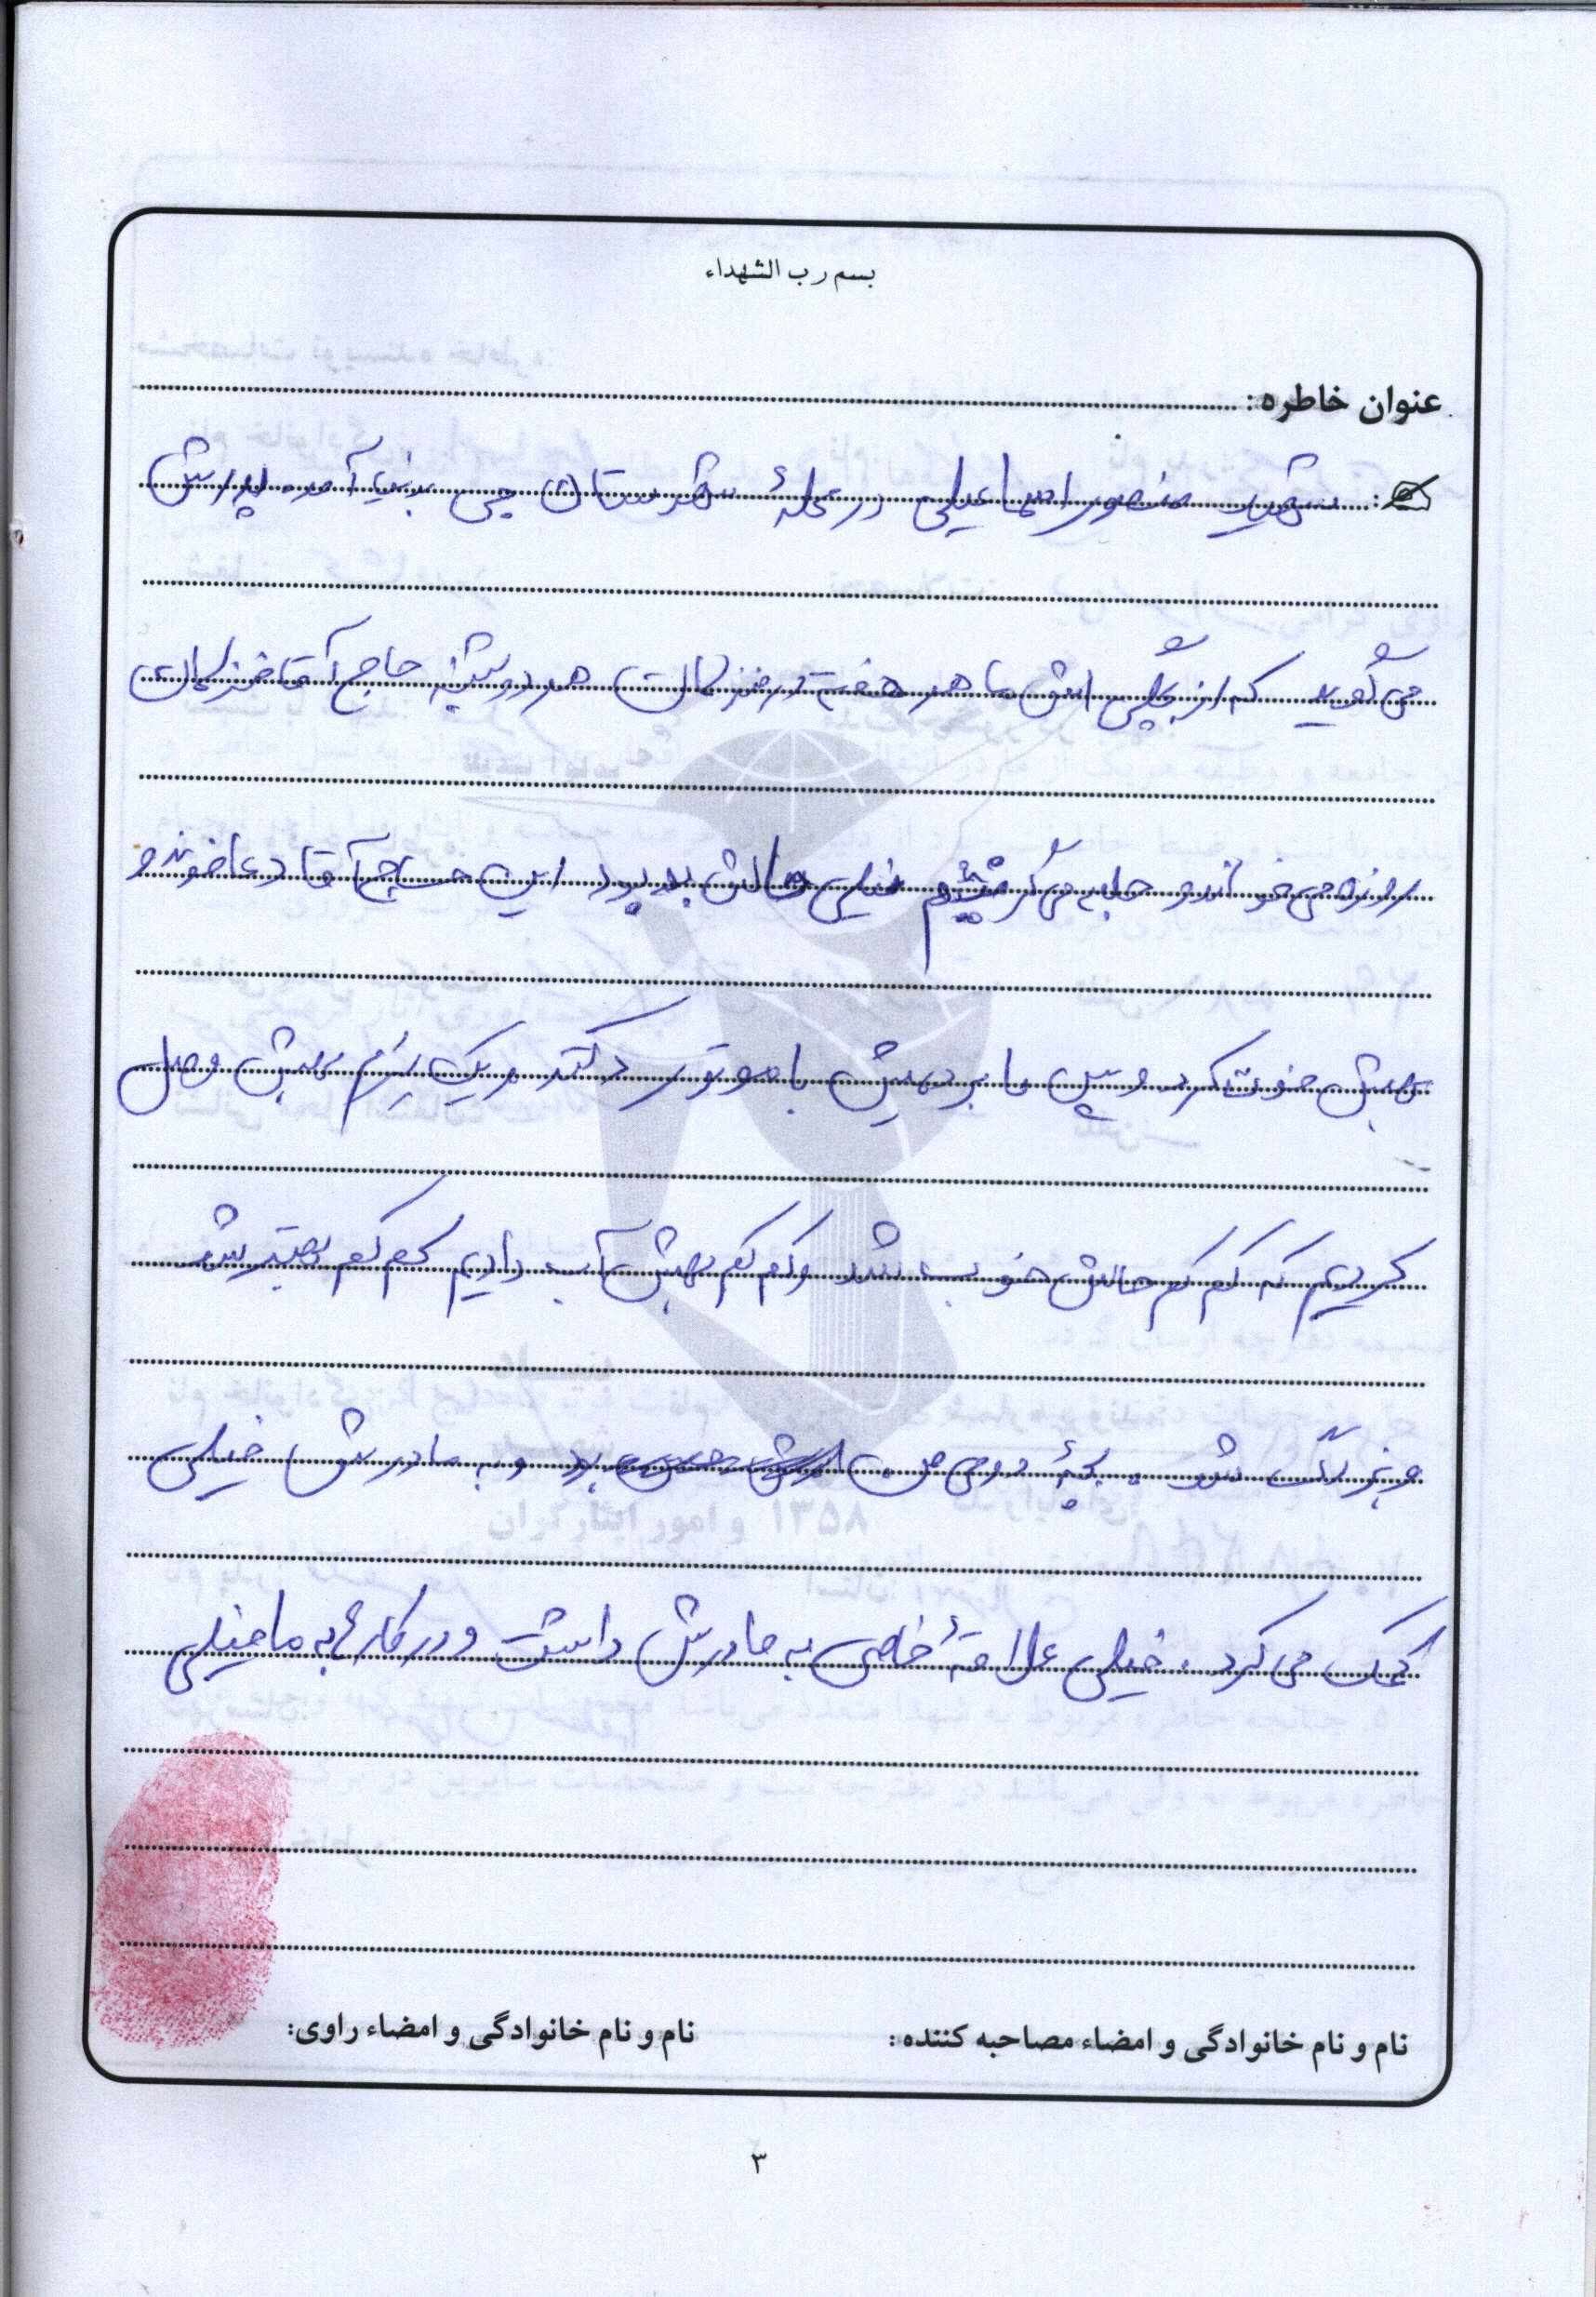 بسم رب الشهداء
عنوان خاطره:
شهید منصور اسماعیلی در محلهٔ شهرستان جی بدنیا آمد. پدرش
می گوید که از بچگی اش ما هر هفته در منزلمان هر دوشنبه حاج آقا
روزه می خواند و جلسه می گرفتیم خیلی حالش بد بود این حاج آقا دعا خوند و
بهش فوت کرد و سپس ما بردیمش با موتور دکتر و یک سرم بهش وصل
کردیم که کم کم حالش خوب شد و کم کم بهش آب دادیم کم کم بهتر شد
و بزرگ شد. بچهٔ دومی من بود و به مادرش خیلی
کمک می کرد. خیلی علاقهٔ خاصی به مادرش داشت و در کارها به ما خیلی
نام و نام خانوادگی و امضاء مصاحبه کننده:
نام و نام خانوادگی و امضاء راوی:
۳